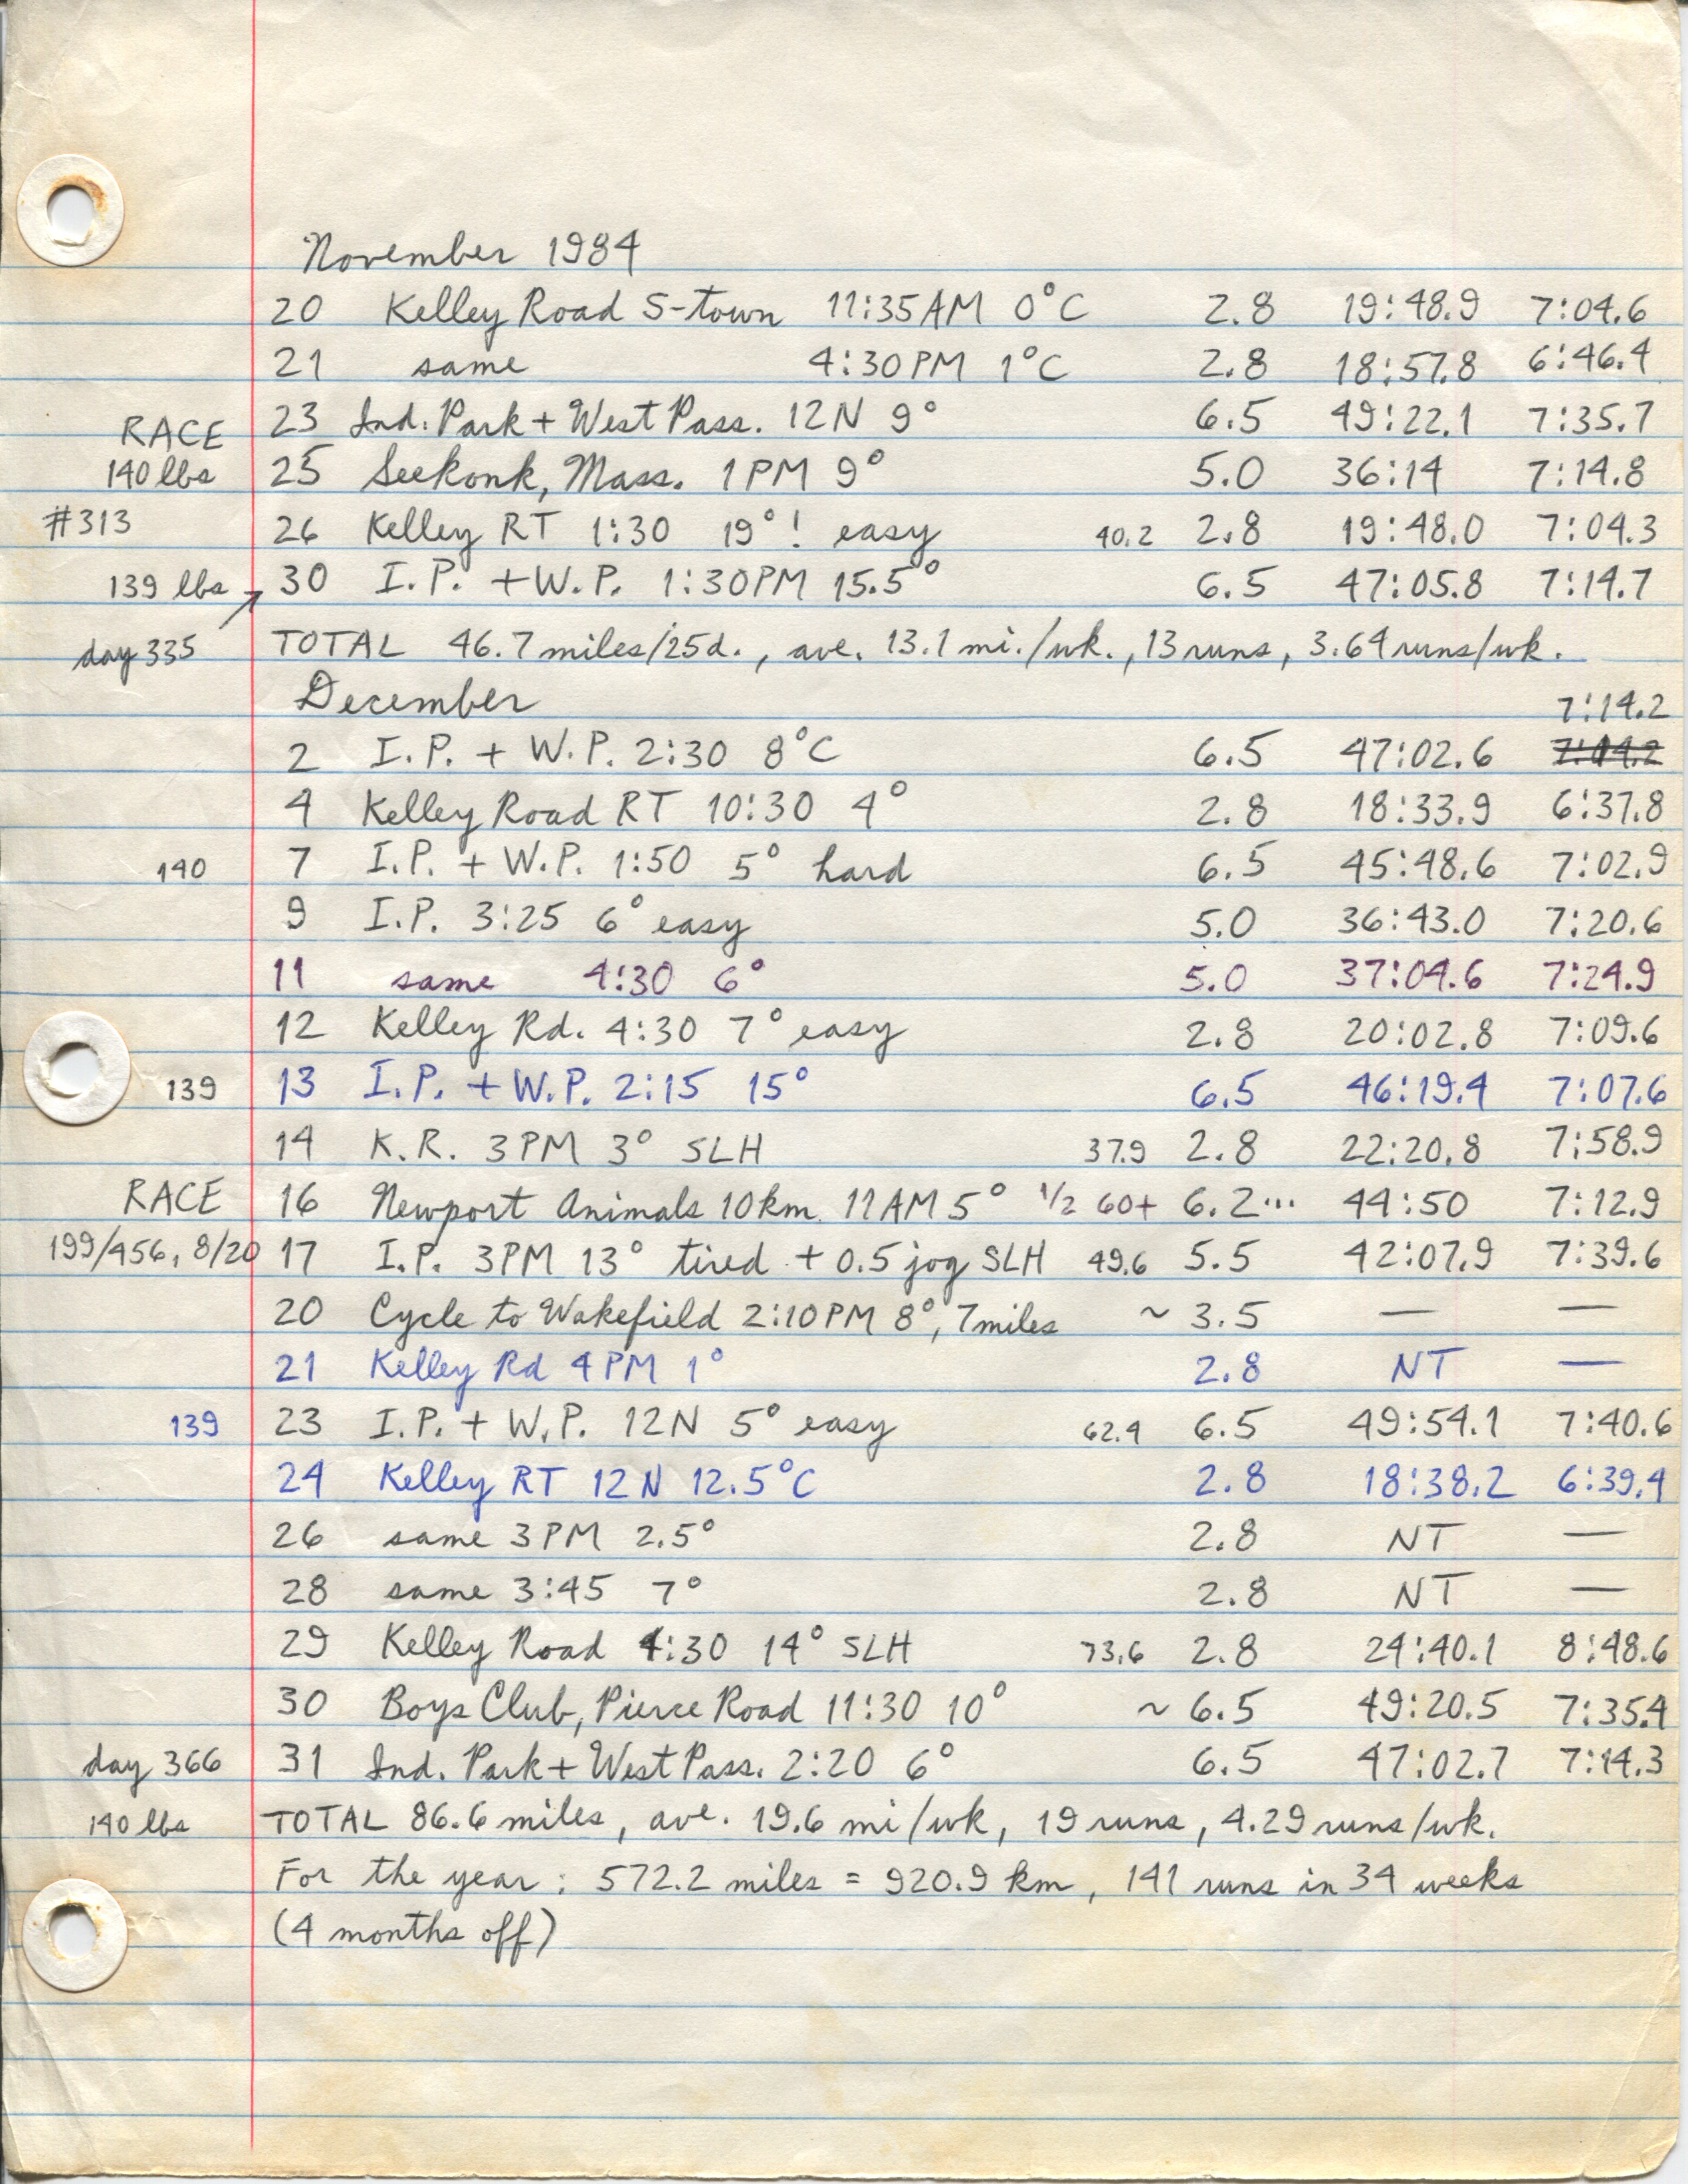 November 1984
20 Kelley Road S-town 11:35AM 0°C 2.8 19:48.9 7:04.6
21 same 4:30PM 1°C 2.8 18:57.8 6:46.4
RACE 23 Ind. Park + West Pass. 12N 9° 6.5 49:22.1 7:35.7
140 lbs 25 Seekonk, Mass. 1PM 9° 5.0 36:14 7:14.8
#313 26 Kelley RT 1:30 19°! easy 40.2 2.8 19:48.0 7:04.3
139 lbs 30 I.P. + W.P. 1:30PM 15.5° 6.5 47:05.8 7:14.7
day 335 TOTAL 46.7 miles/25d., ave. 13.1 mi./wk., 13 runs, 3.64 runs/wk.
December 7:14.2
2 I.P. + W.P. 2:30 8°C 6.5 47:02.6 7:04.2
4 Kelley Road RT 10:30 4° 2.8 18:33.9 6:37.8
140 7 I.P. + W.P. 1:50 5° hard 6.5 45:48.6 7:02.9
9 I.P. 3:25 6° easy 5.0 36:43.0 7:20.6
11 same 4:30 6° 5.0 37:04.6 7:24.9
12 Kelley Rd. 4:30 7° easy 2.8 20:02.8 7:09.6
139 13 I.P. + W.P. 2:15 15° 6.5 46:19.4 7:07.6
14 K.R. 3PM 3° SLH 37.9 2.8 22:20.8 7:58.9
RACE 16 Newport Animals 10km. 11AM 5° 1/2 60+ 6.2... 44:50 7:12.9
199/456, 8/20 17 I.P. 3PM 13° tired + 0.5 jog SLH 49.6 5.5 42:07.9 7:39.6
20 Cycle to Wakefield 2:10PM 8°, 7miles ~ 3.5 — —
21 Kelley Rd 4PM 1° 2.8 NT —
139 23 I.P. + W.P. 12N 5° easy 62.4 6.5 49:54.1 7:40.6
24 Kelley RT 12N 12.5°C 2.8 18:38.2 6:39.4
26 same 3PM 2.5° 2.8 NT —
28 same 3:45 7° 2.8 NT —
29 Kelley Road 4:30 14° SLH 73.6 2.8 24:40.1 8:48.6
30 Boys Club, Pierce Road 11:30 10° ~ 6.5 49:20.5 7:35.4
day 366 31 Ind. Park + West Pass. 2:20 6° 6.5 47:02.7 7:14.3
140 lbs TOTAL 86.6 miles, ave. 19.6 mi/wk, 19 runs, 4.29 runs/wk.
For the year: 572.2 miles = 920.9 km, 141 runs in 34 weeks
(4 months off)